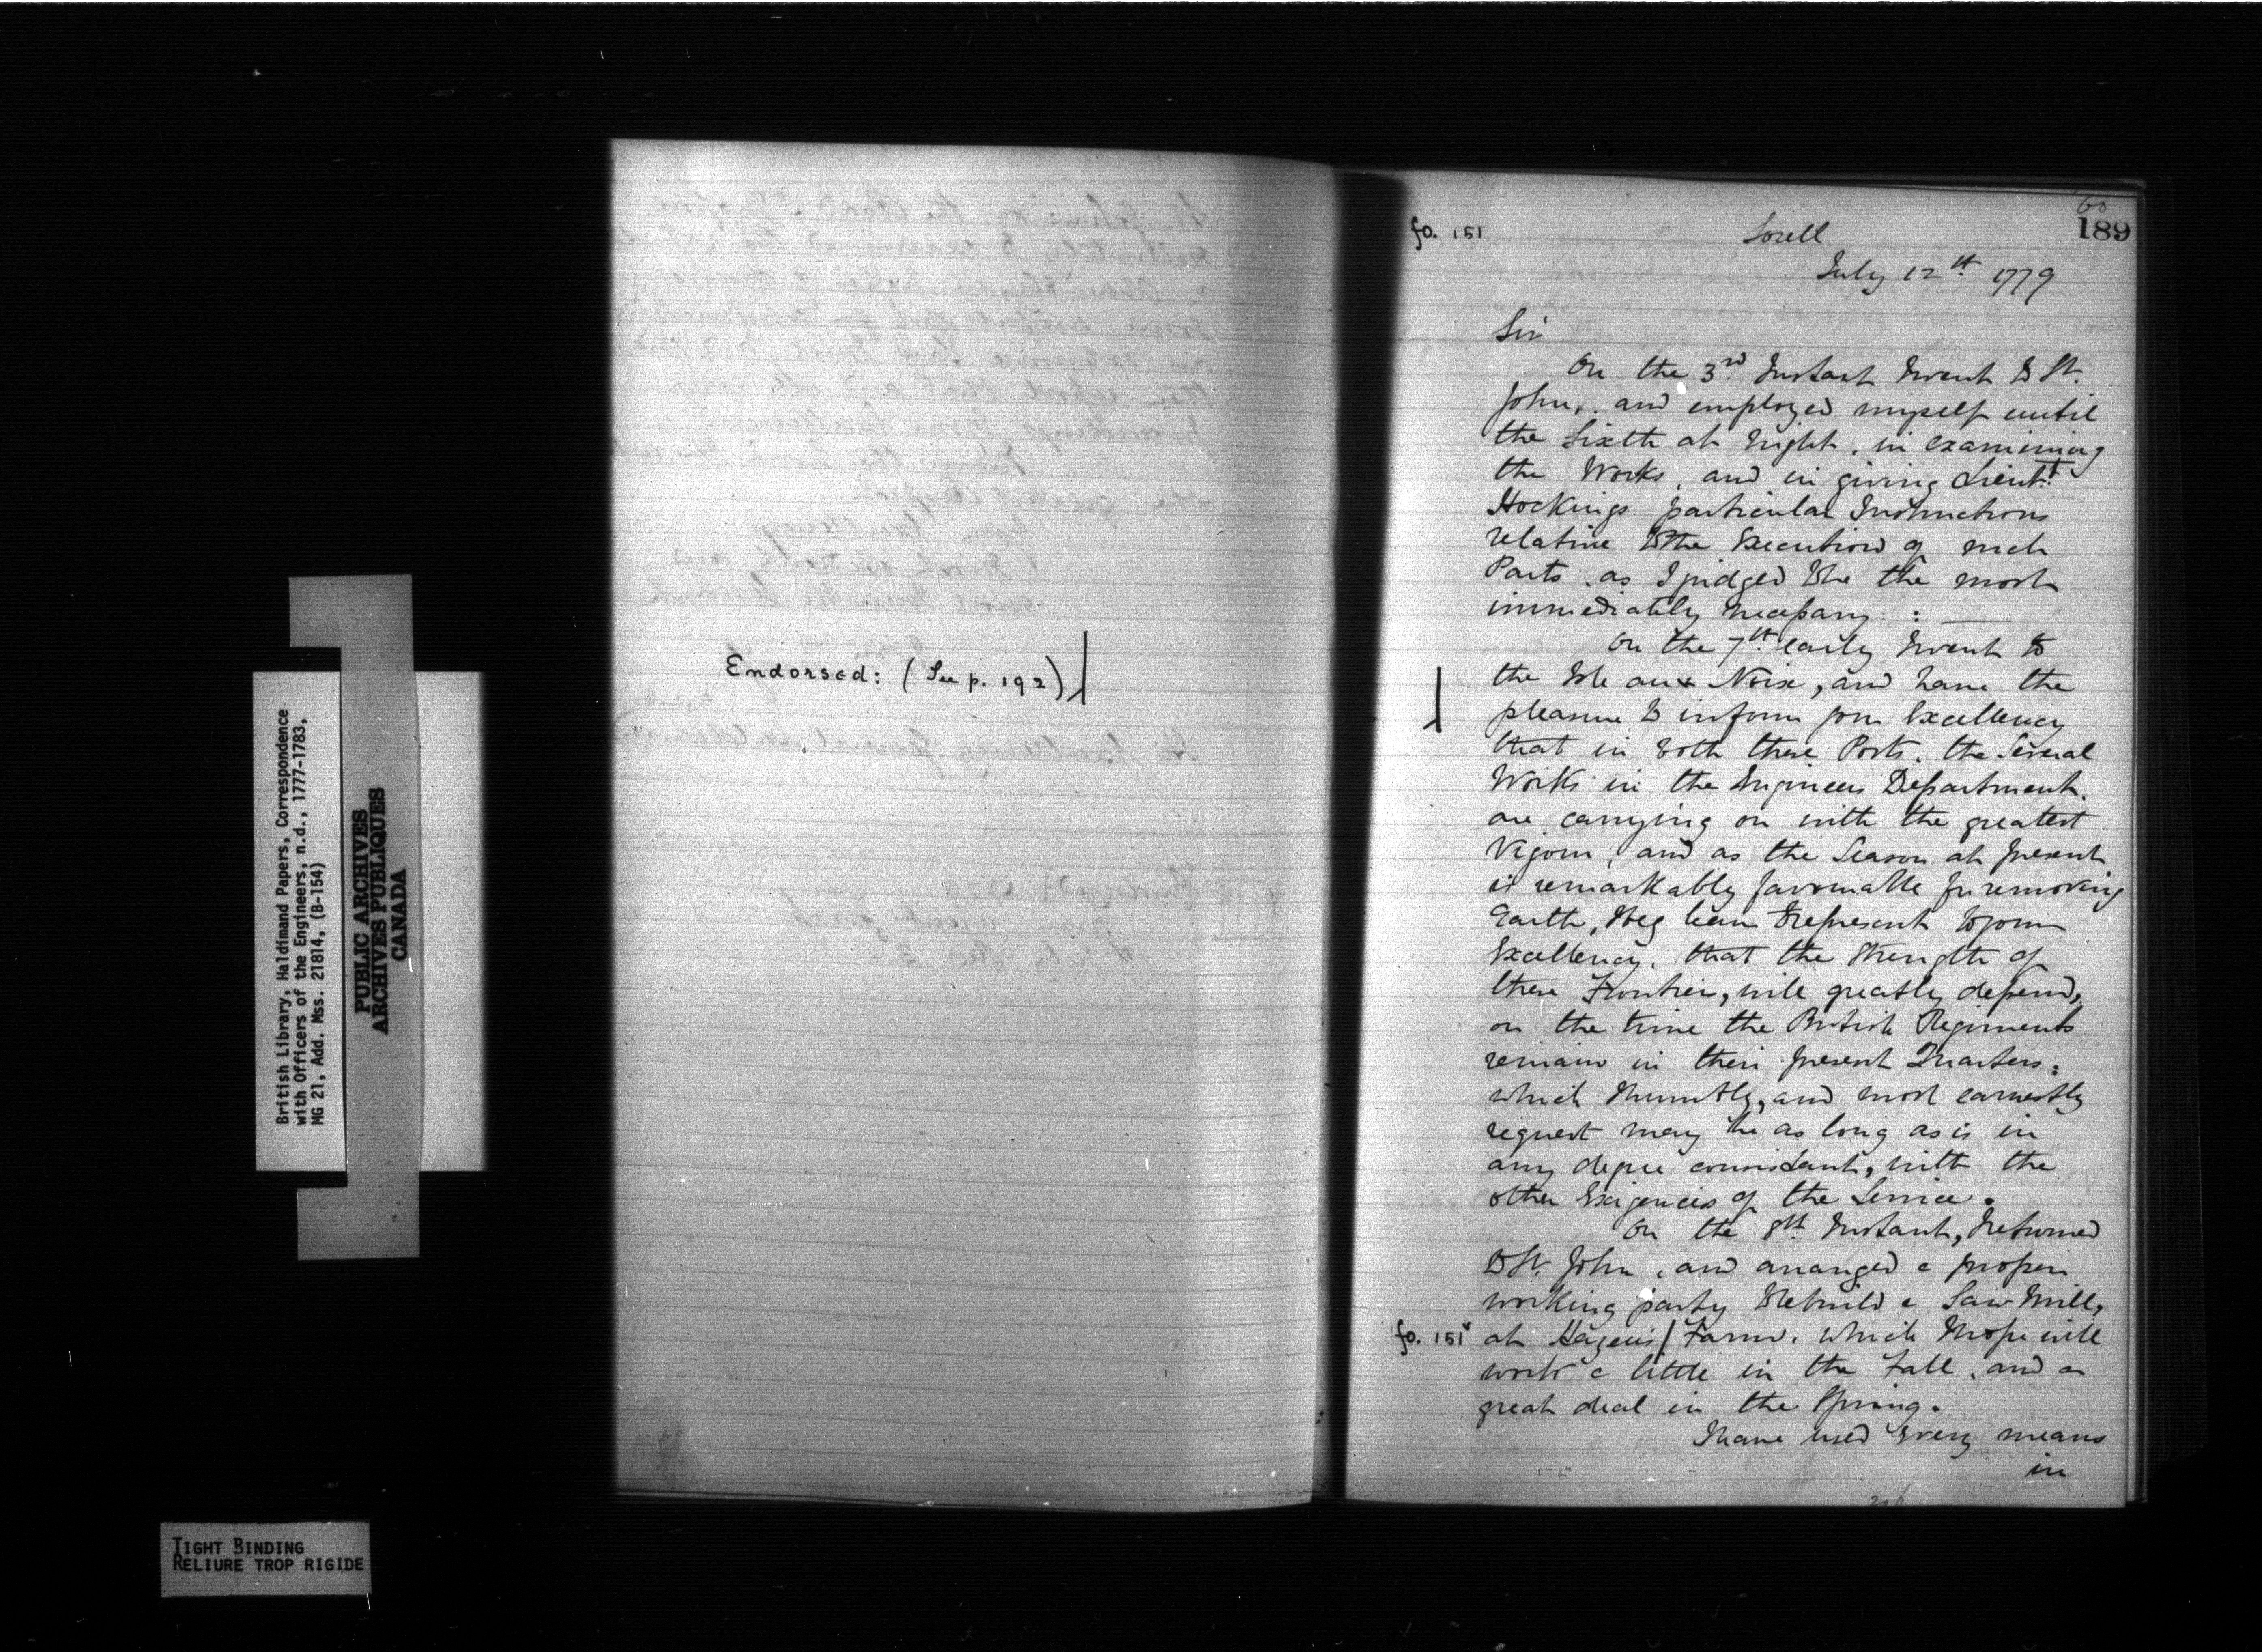 British Library, Haldimand Papers, Correspondence
with Officers of the Engineers, n.d., 1777-1783,
MG 21, Add. Mss. 21814, (B-154)
PUBLIC ARCHIVES
ARCHIVES PUBLIQUES
CANADA
TIGHT BINDING
RELIURE TROP RIGIDE
Endorsed: (See p. 192)
60
189
fo. 151
Sorell
July 12th 1779
Sir
On the 3rd Instant I went to St.
John, and employed myself until
the Sixth at Night, in examining
the Works, and in giving Lieutt.
Hockings particular Instructions
relative to the Execution of such
Parts, as I judged to be the most
immediately necessary:
On the 7th early I went to
the Isle aux Noix, and have the
pleasure to inform your Excellency
that in both these Posts, the Several
Works in the Engineers Department,
are carrying on with the greatest
Vigour, and as the Season at present
is remarkably favourable for removing
Earth, I beg leave to represent to your
Excellency, that the Strength of
these Frontier, will greatly depend,
on the time the British Regiments
remain in their present Quarters:
which I humbly, and most earnestly
request may be as long as is in
any degree consistant, with the
other Exigencies of the Service.
On the 8th Instant, I returned
to St. John, and arranged a proper
working party to rebuild a Saw Mill,
fo. 151v at Hazens/ Farm, which I hope will
work a little in the Fall, and a
great deal in the Spring.
I have used Every means
in